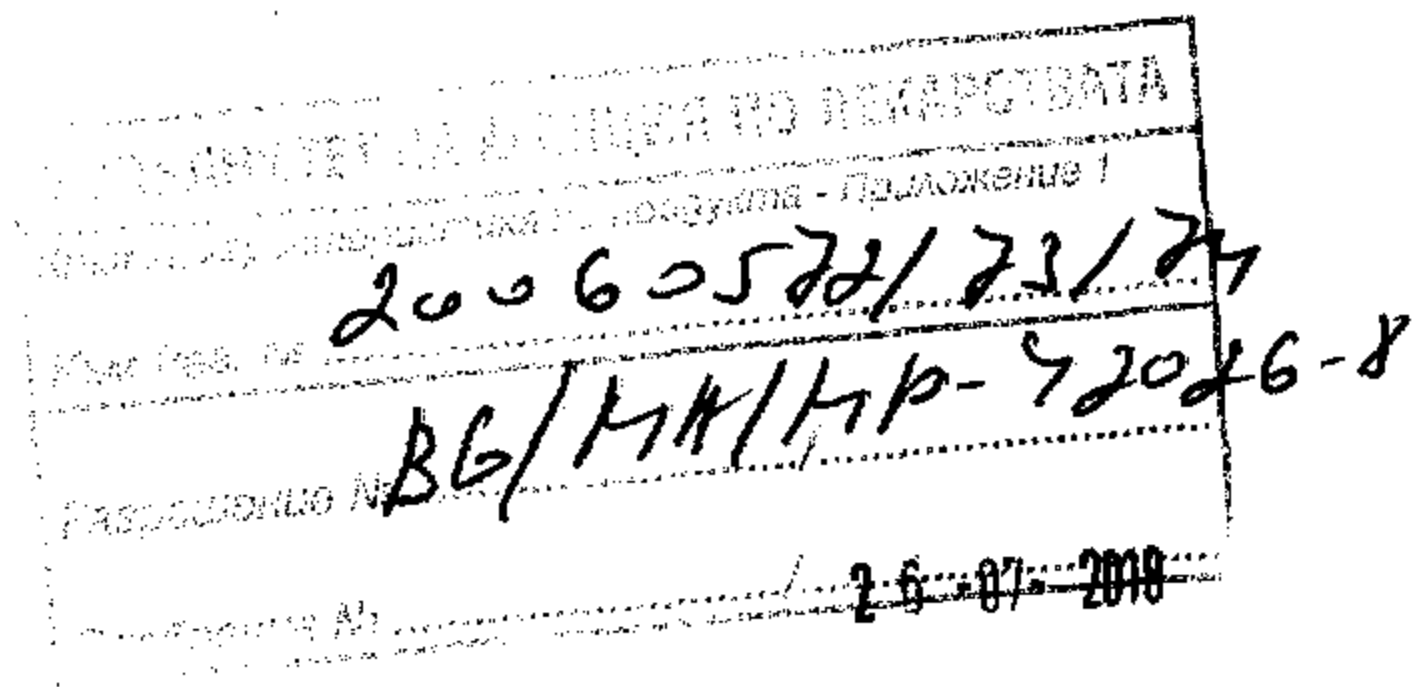 ИЗПЪЛНИТЕЛНА АГЕНЦИЯ ПО ЛЕКАРСТВАТА
Кратка характеристика на продукта - Приложение 1
Към Рег. № 20060572/73/74
Разрешение № BG/MA/MP-42026-8
№ / 26 -07- 2018